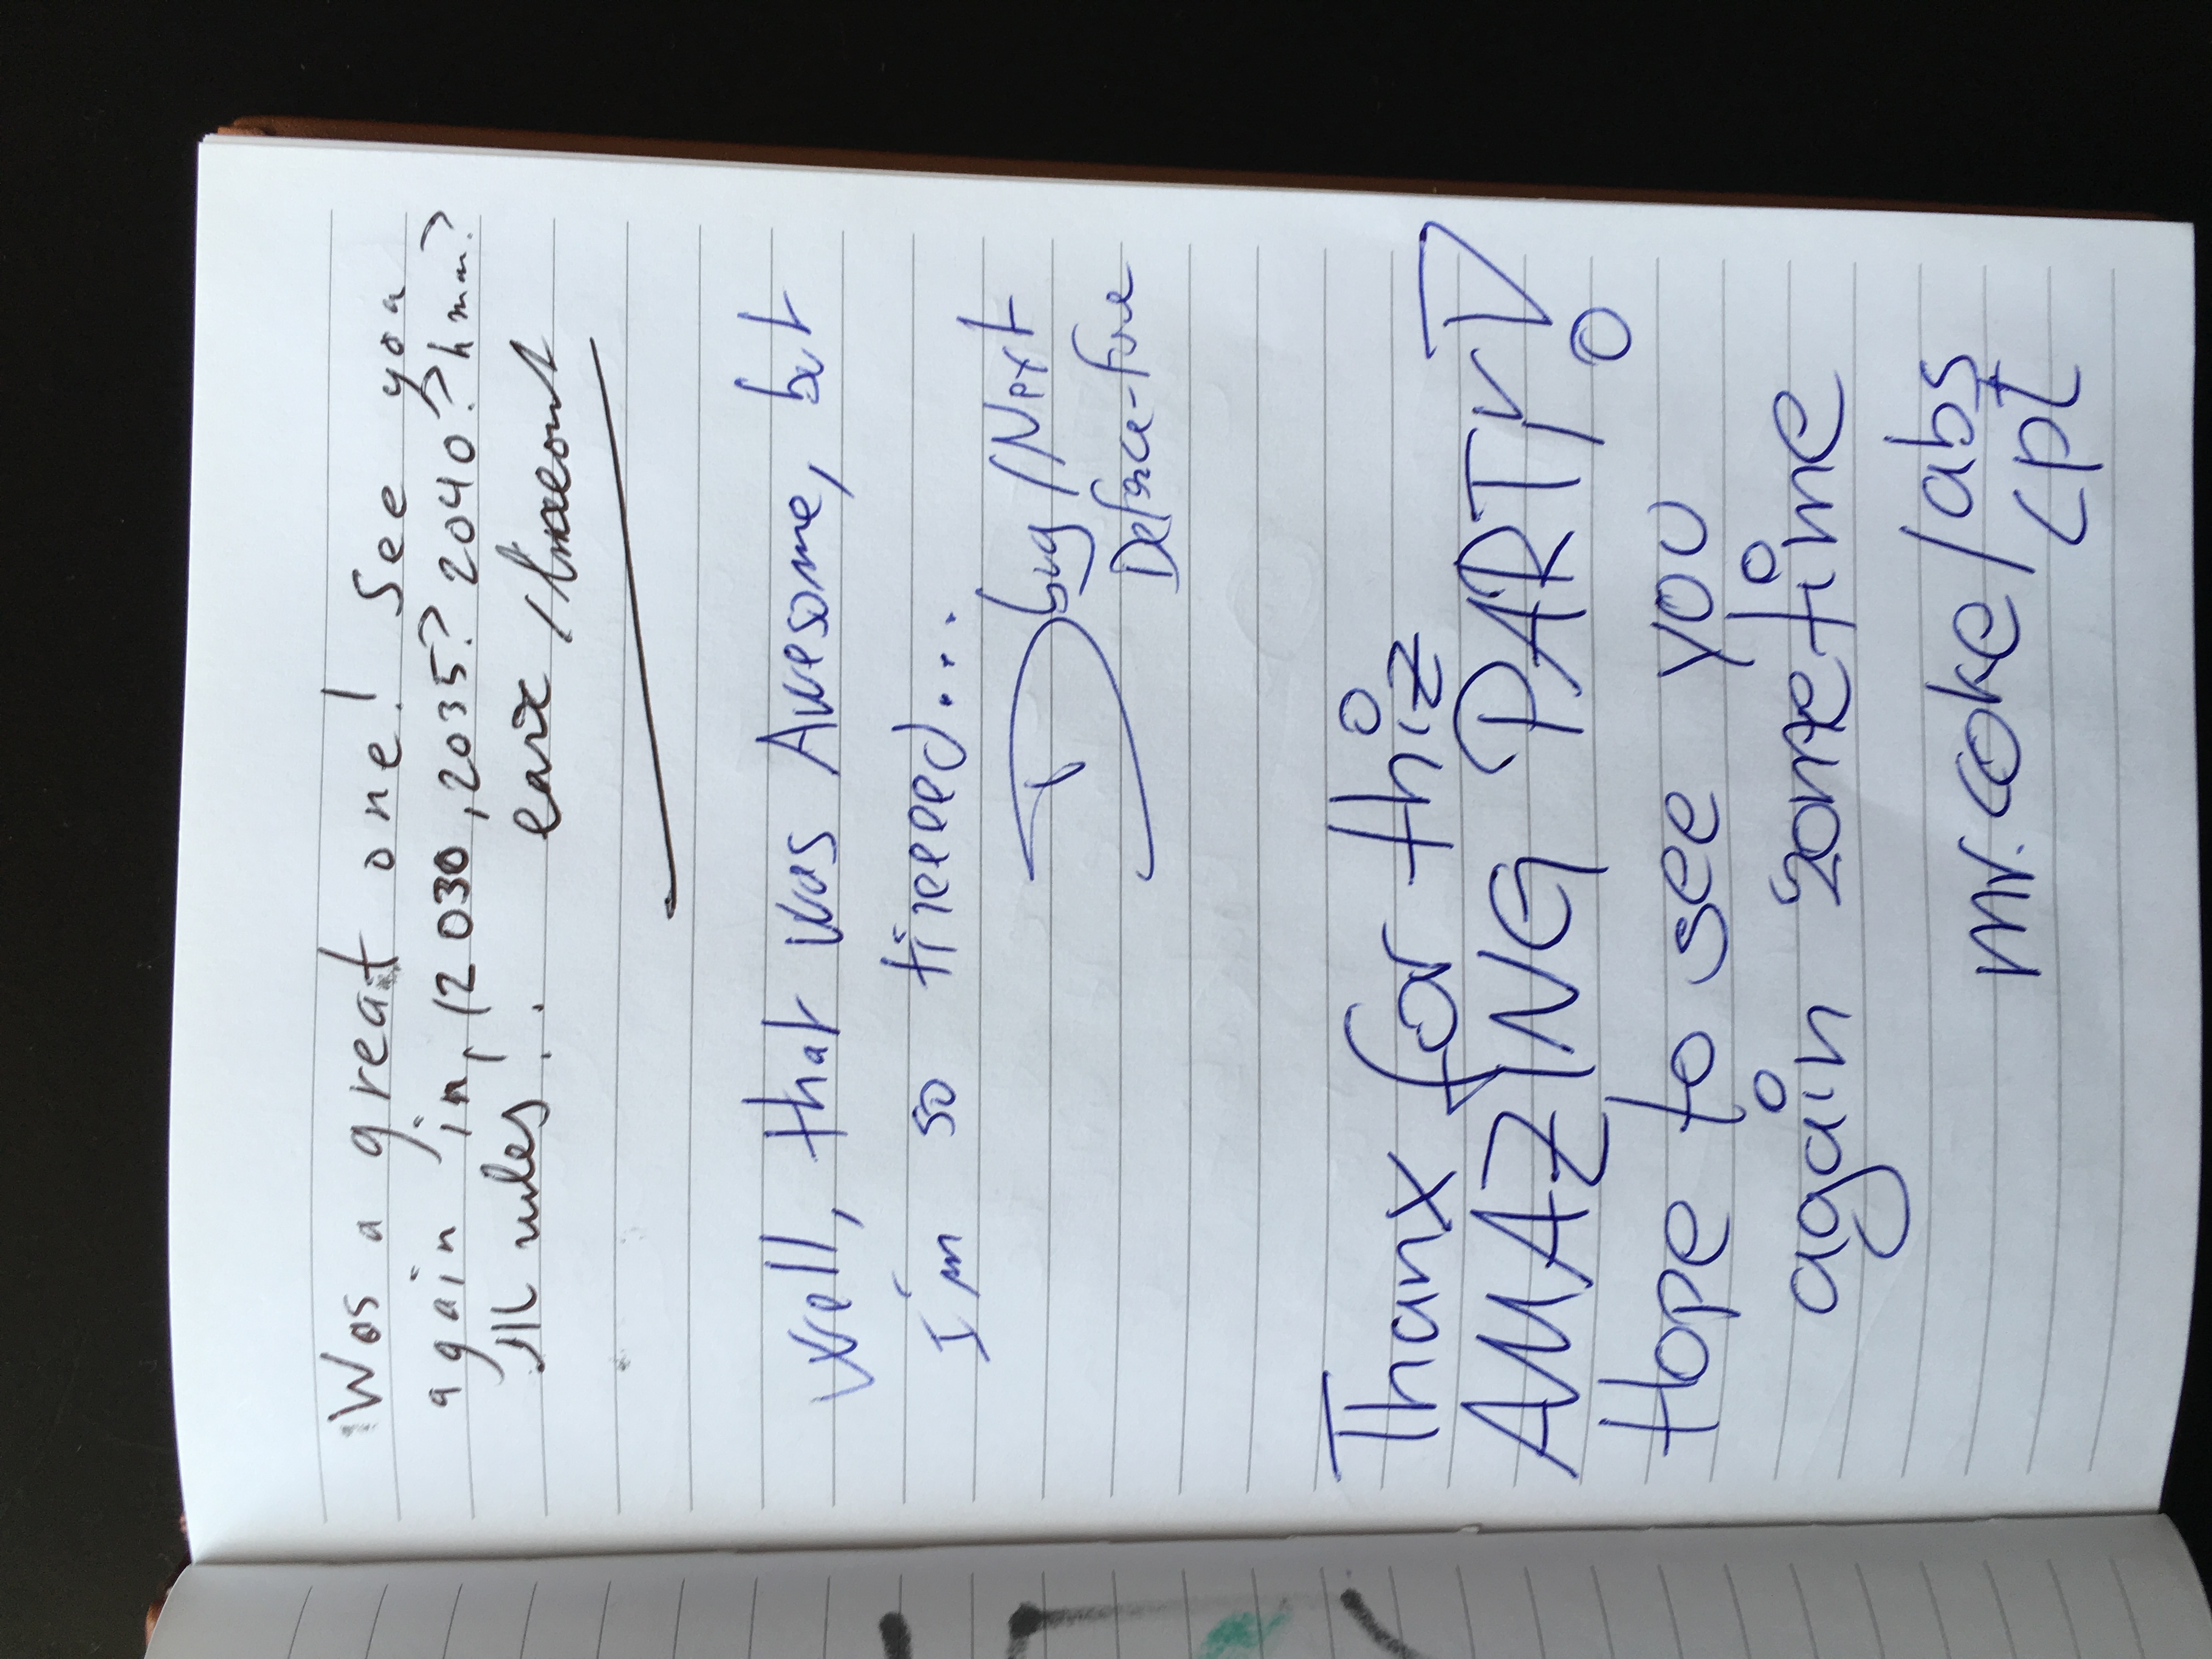 Was a great one! See you
again in, (2030, 2035? 2040? hmm?)
JML rules!
Well, that was Awesome, but
I'm so tireeed...
bug/Next
Defence-Force
Thanx for thiz
AMAZING PARTY!
Hope to see you
again zometime
mr.coke/abs
cpt